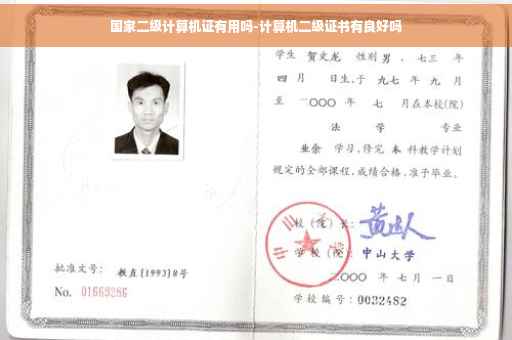 国家二级计算机证有用吗-计算机二级证书有良好吗
学生 贺文龙 性别 男 、七三 年
四 月 日生,于 九七 年 九 月
至 二〇〇〇 年 七 月在本校(院)
法 学 专业
业余 学习,修完 本 科教学计划
规定的全部课程,成绩合格,准予毕业。
校(院)长:
学校(院): 中山大学
批准文号: 教直[1993]8号
二〇〇〇 年 七 月 一 日
No. 01669286
学校编号: 0032482